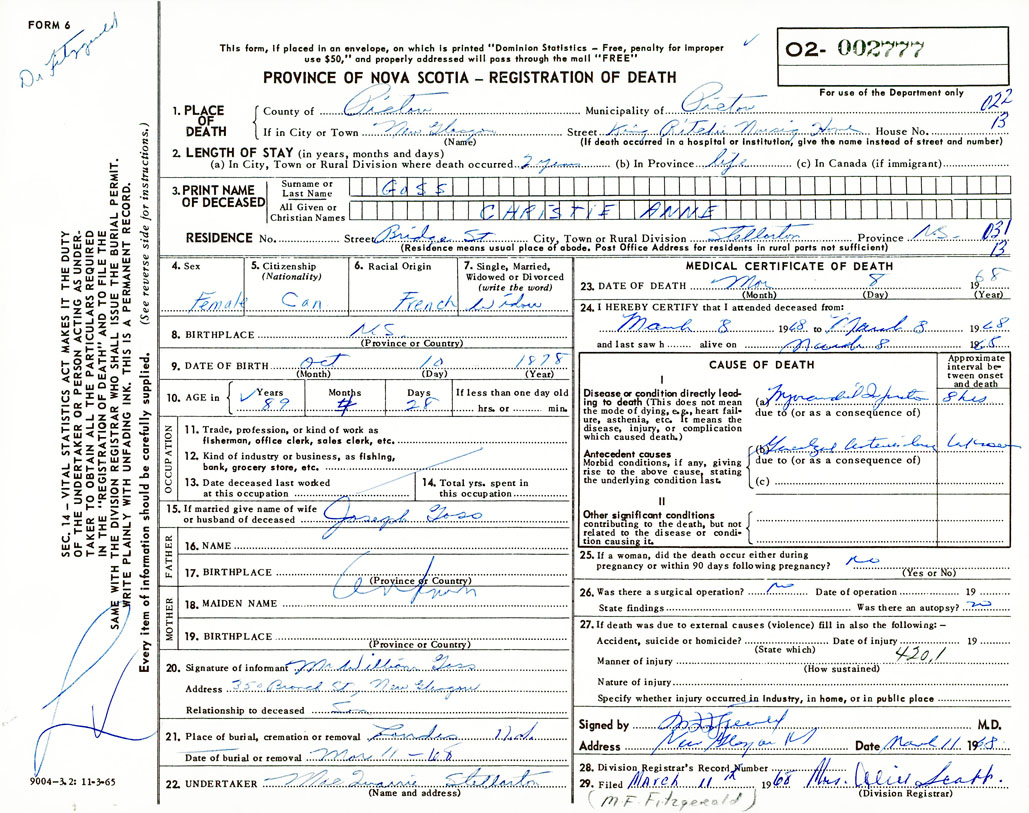 FORM 6
Dr Fitzgerald
This form, if placed in an envelope, on which is printed "Dominion Statistics – Free, penalty for improper
use $50," and properly addressed will pass through the mail "FREE"
O2- 002777
PROVINCE OF NOVA SCOTIA – REGISTRATION OF DEATH
For use of the Department only
1. PLACE OF DEATH County of Pictou Municipality of Pictou 022
If in City or Town New Glasgow Street King Ritchie Nursing Home House No. 13
(Name) (If death occurred in a hospital or institution, give the name instead of street and number)
2. LENGTH OF STAY (in years, months and days)
(a) In City, Town or Rural Division where death occurred 2 years (b) In Province life (c) In Canada (if immigrant)
3. PRINT NAME OF DECEASED Surname or Last Name GOSS
All Given or Christian Names CHRISTIE ANNE
RESIDENCE No. Street Bridge St City, Town or Rural Division Stellarton Province N.S. 031
(Residence means usual place of abode. Post Office Address for residents in rural parts not sufficient) 13
4. Sex Female
5. Citizenship (Nationality) Can
6. Racial Origin French
7. Single, Married, Widowed or Divorced (write the word) Widow
8. BIRTHPLACE N.S.
(Province or Country)
9. DATE OF BIRTH Oct 10 1878
(Month) (Day) (Year)
10. AGE in Years 89 Months 4 Days 28 If less than one day old
hrs. or min.
OCCUPATION
11. Trade, profession, or kind of work as
fisherman, office clerk, sales clerk, etc.
12. Kind of industry or business, as fishing,
bank, grocery store, etc.
13. Date deceased last worked
at this occupation
14. Total yrs. spent in
this occupation
15. If married give name of wife
or husband of deceased Joseph Goss
FATHER
16. NAME
17. BIRTHPLACE
(Province or Country)
MOTHER
18. MAIDEN NAME
19. BIRTHPLACE
(Province or Country)
20. Signature of informant Mr William Goss
Address 350 Broad St, New Glasgow
Relationship to deceased Son
21. Place of burial, cremation or removal
Date of burial or removal Mar 11 - 68
22. UNDERTAKER Stellarton
(Name and address)
MEDICAL CERTIFICATE OF DEATH
23. DATE OF DEATH Mar 8 1968
(Month) (Day) (Year)
24. I HEREBY CERTIFY that I attended deceased from:
March 8 1968 to March 8 1968
and last saw h alive on March 8 1968
CAUSE OF DEATH
Approximate interval between onset and death
I
Disease or condition directly leading to death (This does not mean the mode of dying, e.g., heart failure, asthenia, etc. It means the disease, injury, or complication which caused death.)
(a) 8 hrs
due to (or as a consequence of)
Antecedent causes
Morbid conditions, if any, giving rise to the above cause, stating the underlying condition last.
(b) Generalized
due to (or as a consequence of)
(c)
II
Other significant conditions
contributing to the death, but not related to the disease or condition causing it.
25. If a woman, did the death occur either during
pregnancy or within 90 days following pregnancy? no
(Yes or No)
26. Was there a surgical operation? no Date of operation 19
State findings Was there an autopsy? no
27. If death was due to external causes (violence) fill in also the following: –
Accident, suicide or homicide? Date of injury 19
(State which) 420.1
Manner of injury
(How sustained)
Nature of injury
Specify whether injury occurred in industry, in home, or in public place
Signed by M.D.
Address New Glasgow NS Date March 11 1968
28. Division Registrar's Record Number
29. Filed March 11th 1968 Mrs.
(Division Registrar)
(M F. Fitzgerald)
SEC. 14 – VITAL STATISTICS ACT MAKES IT THE DUTY
OF THE UNDERTAKER OR PERSON ACTING AS UNDER-
TAKER TO OBTAIN ALL THE PARTICULARS REQUIRED
IN THE "REGISTRATION OF DEATH" AND TO FILE THE
SAME WITH THE DIVISION REGISTRAR WHO SHALL ISSUE THE BURIAL PERMIT.
WRITE PLAINLY WITH UNFADING INK. THIS IS A PERMANENT RECORD.
Every item of information should be carefully supplied. (See reverse side for instructions.)
9004-3.2: 11-3-65